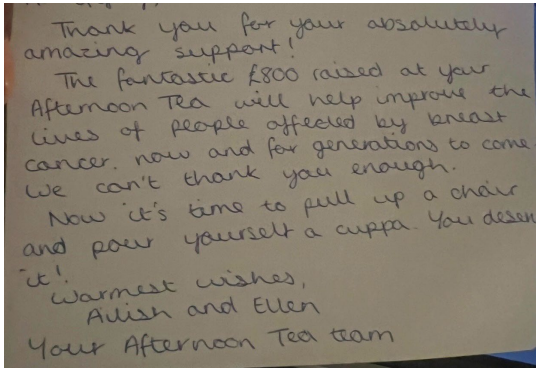 Thank you for your absolutely
amazing support!
The fantastic £800 raised at your
Afternoon Tea will help improve the
lives of people affected by breast
cancer. now and for generations to come.
We can't thank you enough.
Now it's time to pull up a chair
and pour yourself a cuppa. You deser
it!
Warmest wishes,
Ailish and Ellen
Your Afternoon Tea team